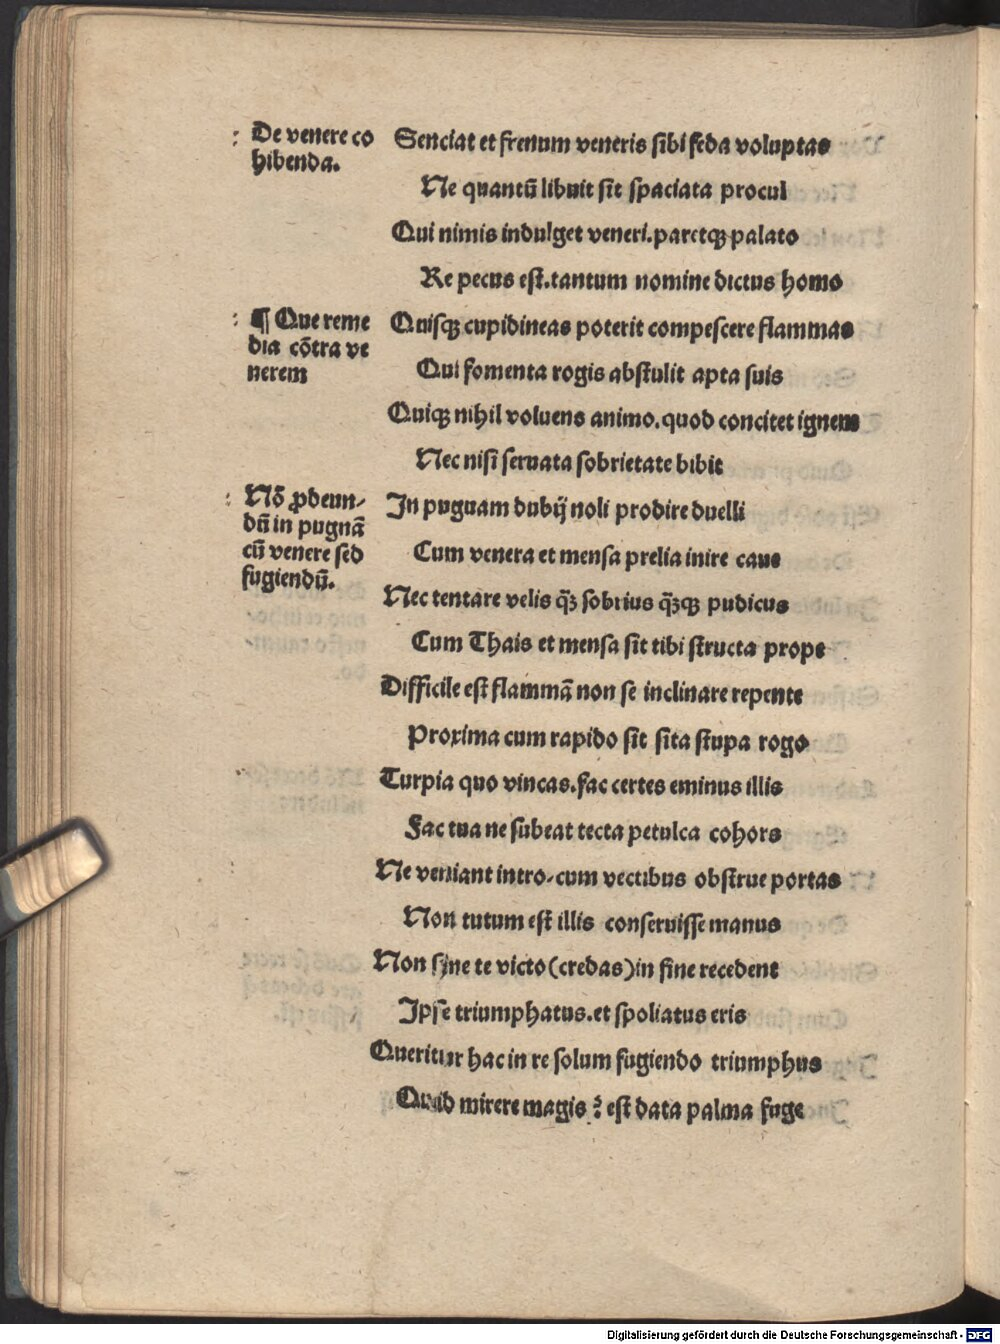 De venere co
hibenda.
Senciat et frenum veneris sibi feda voluptas
Ne quantū libuit sit spaciata procul
Qui nimis indulget veneri.paretqꝫ palato
Re pecus est.tantum nomine dictus homo
¶ Que reme
dia cōtra ve
nerem
Quisqꝫ cupidineas poterit compescere flammas
Qui fomenta rogis abstulit apta suis
Quiqꝫ nihil voluens animo.quod concitet ignem
Nec nisi seruata sobrietate bibit
Nō ꝓdeun⸗
dū in pugnā
cū venere sed
fugiendū.
In pugnam dubij noli prodire duelli
Cum venera et mensa prelia inire caue
Nec tentare velis qꝫ̄ sobrius qꝫ̄qꝫ pudicus
Cum Thais et mensa sit tibi structa prope
Difficile est flammā non se inclinare repente
Proxima cum rapido sit sita stupa rogo
Turpia quo vincas.fac certes eminus illis
Fac tua ne subeat tecta petulca cohors
Ne veniant intro⸗cum vectibus obstrue portas
Non tutum est illis conseruisse manus
Non sine te victo(credas)in fine recedent
Ipse triumphatus.et spoliatus eris
Queritur hac in re solum fugiendo triumphus
Quid mirere magis? est data palma fuge
Digitalisierung gefördert durch die Deutsche Forschungsgemeinschaft - DFG